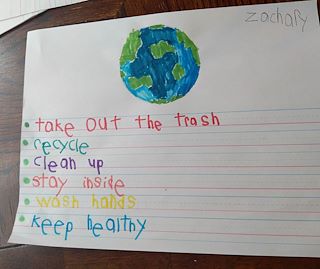 zachary
take out the trash
recycle
clean up
stay inside
wash hands
keep healthy